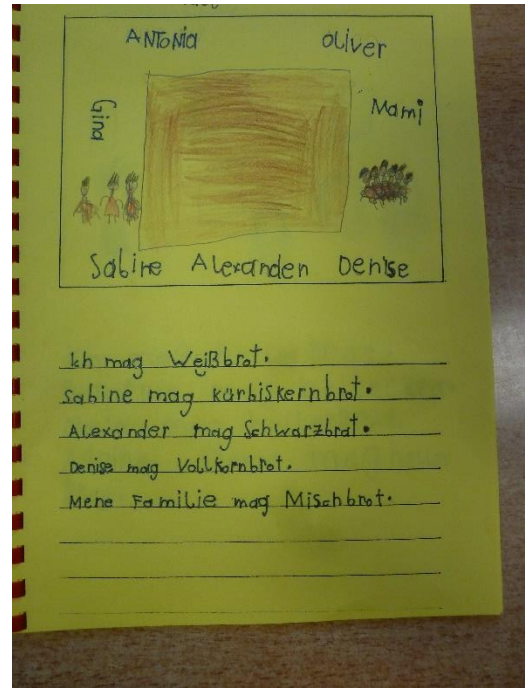 ANTONIA Oliver
Gina
Mami
Sabine Alexanden Denise
Ich mag Weißbrot.
Sabine mag kürbiskernbrot.
Alexander mag Schwarzbrat.
Denise mag Vollkornbrot.
Mene Familie mag Mischbrot.